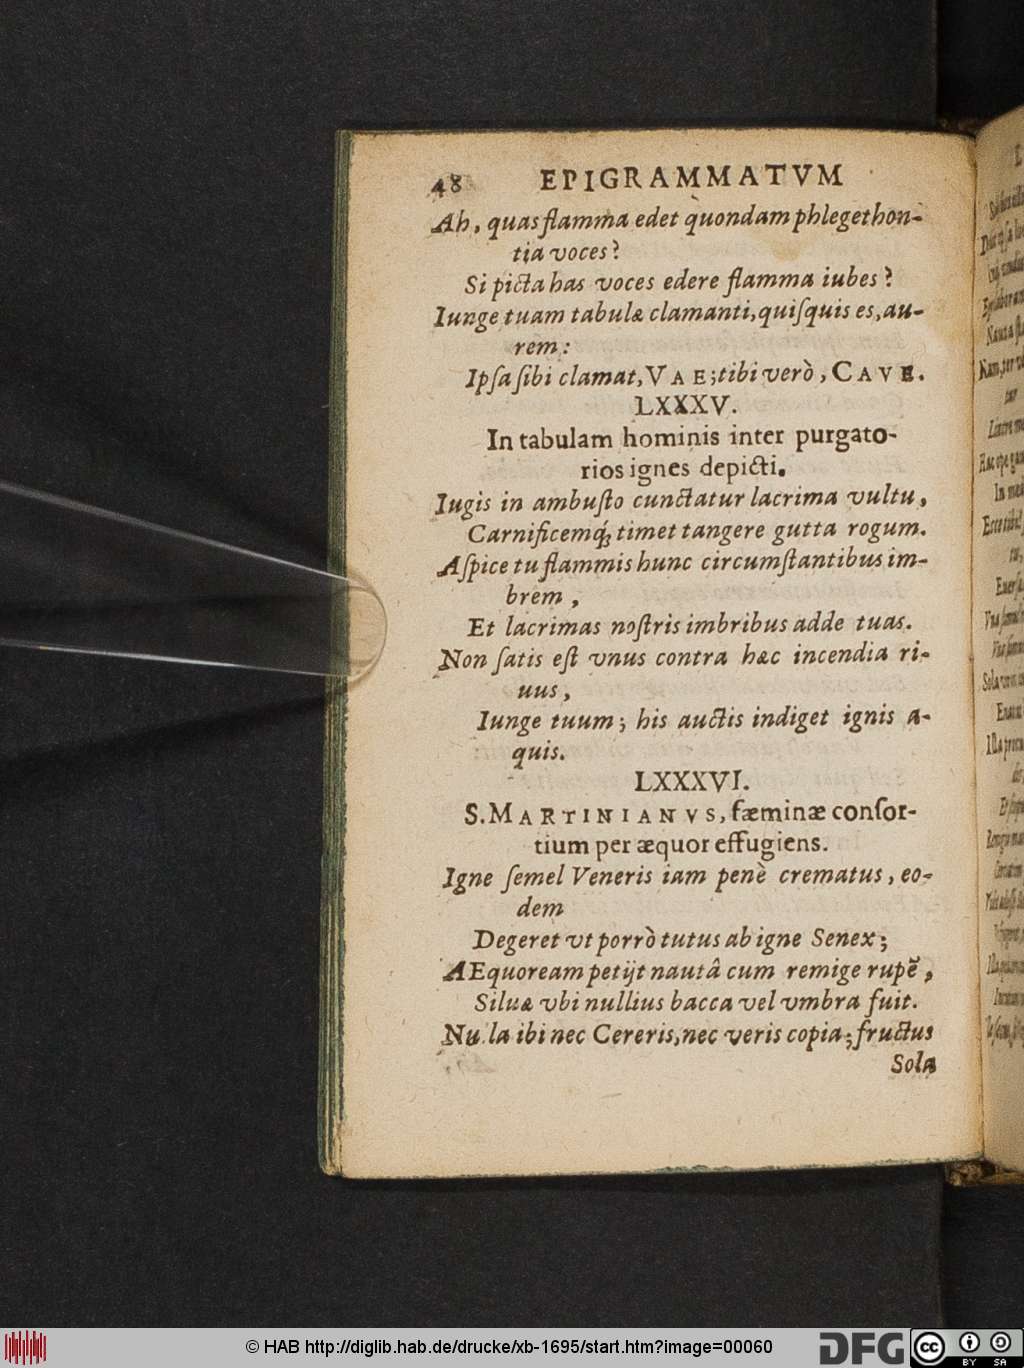 48 EPIGRAMMATVM
Ah, quas flamma edet quondam phlegethon-
tia voces?
Si picta has voces edere flamma iubes?
Iunge tuam tabulæ clamanti, quiſquis es, au-
rem:
Ipſa ſibi clamat, VAE; tibi verò, CAVE.
LXXXV.
In tabulam hominis inter purgato-
rios ignes depicti.
Iugis in ambuſto cunctatur lacrima vultu,
Carnificemq́; timet tangere gutta rogum.
Aſpice tu flammis hunc circumſtantibus im-
brem,
Et lacrimas noſtris imbribus adde tuas.
Non ſatis eſt vnus contra hæc incendia ri-
uus,
Iunge tuum; his auctis indiget ignis a-
quis.
LXXXVI.
S. MARTINIANVS, fæminæ conſor-
tium per æquor effugiens.
Igne ſemel Veneris iam penè crematus, eo-
dem
Degeret vt porrò tutus ab igne Senex;
AEquoream petijt nautâ cum remige rupẽ,
Siluæ vbi nullius bacca vel vmbra fuit.
Nulla ibi nec Cereris, nec veris copia; fructus
Sola
© HAB http://diglib.hab.de/drucke/xb-1695/start.htm?image=00060
DFG
cc BY SA